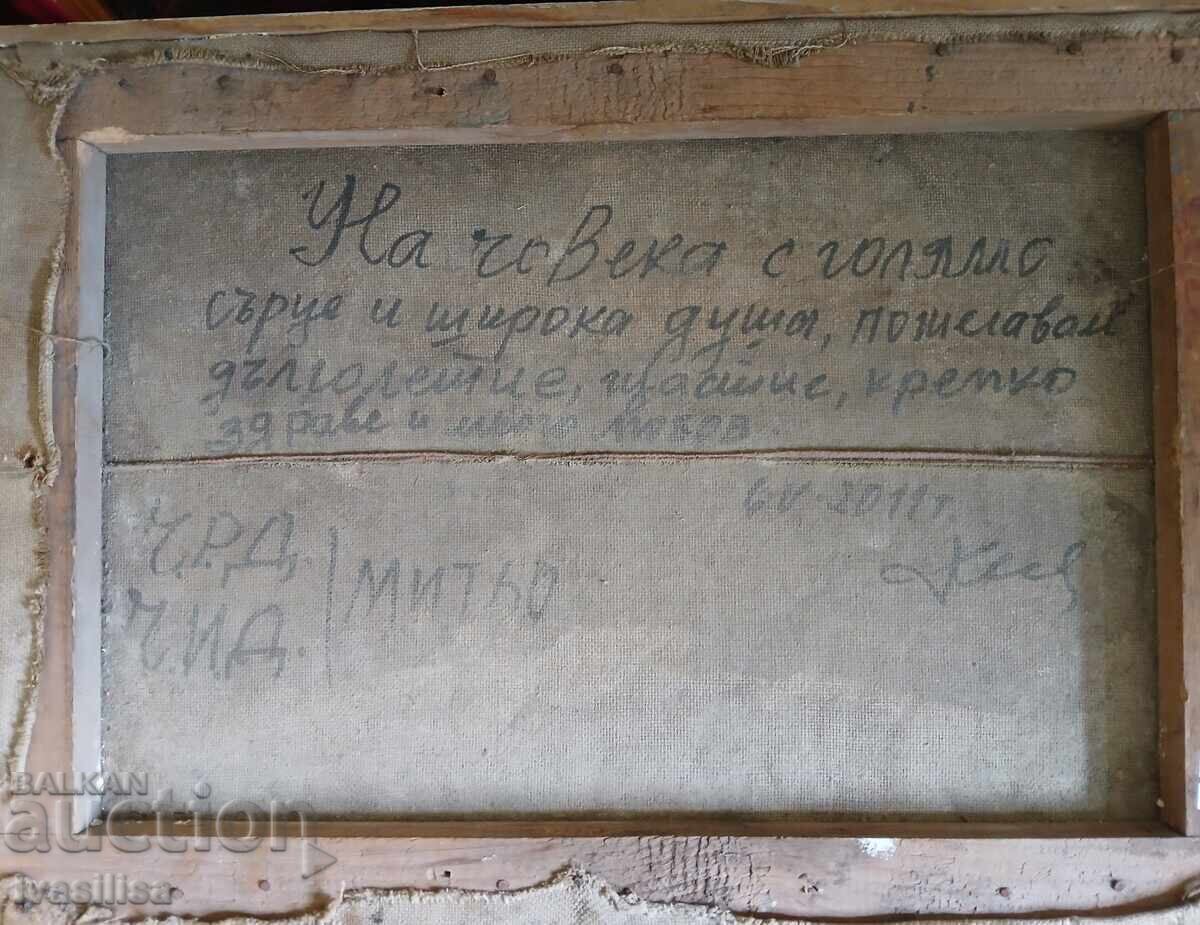 На човека с голямо
сърце и широка душа, пожелавам
дълголетие, щастие, крепко
здраве и много любов.
6.V.2011г.
Ч.Р.Д.
Ч.И.Д.
МИТЬО
BALKAN
auction
ivasilisa